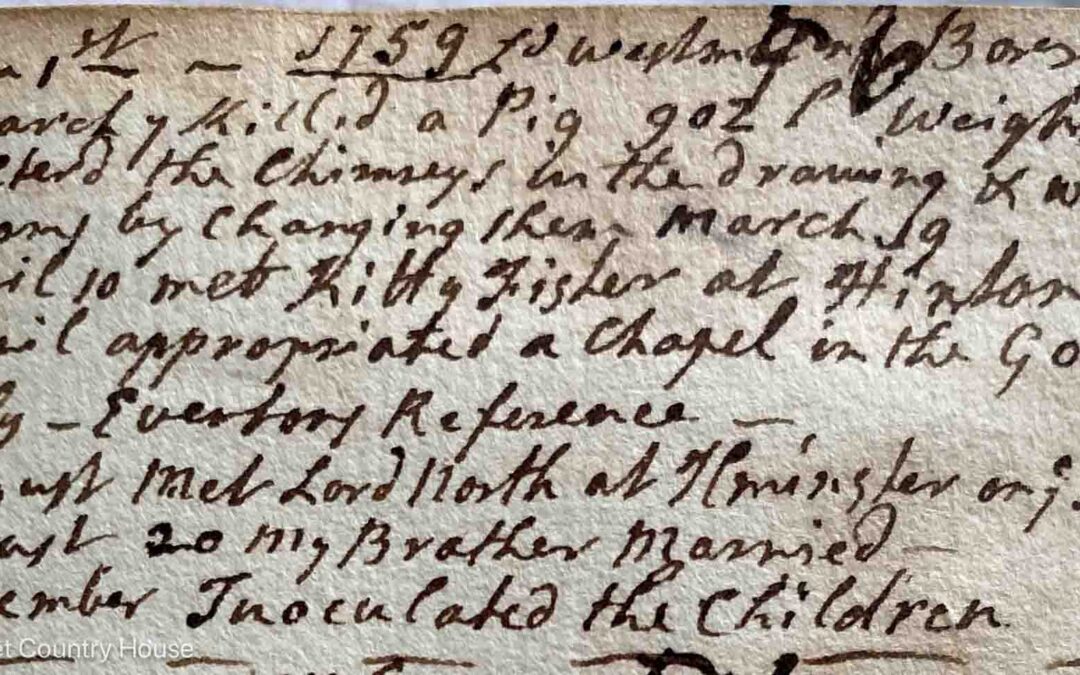 1st - 1759
arch 7 Killed a Pig 902 l Weigh
terd the Chimneys in the drawing & w
oms by Changing them March 19
il 10 met Kitty Fisher at Hinton
il appropriated a Chapel in the Go
y - Evertons Reference -
ust Met Lord North at Ilminster on ye
ust 20 My Brother Married -
ember Inoculated the Children
et Country House